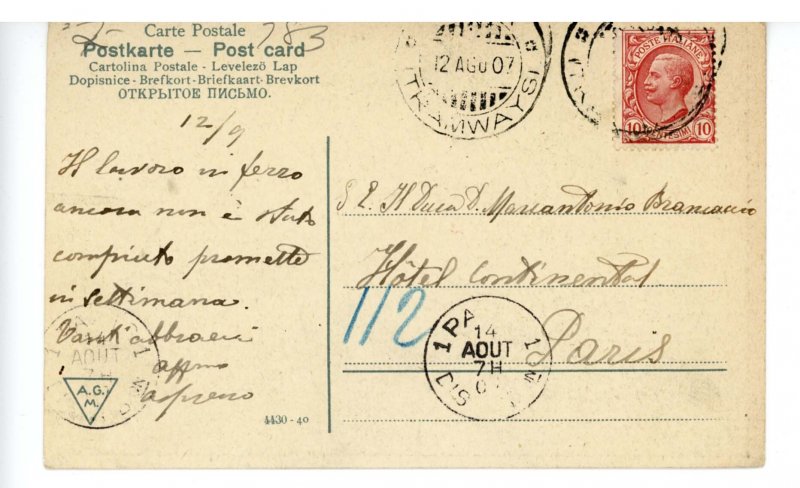 Carte Postale
Postkarte — Post card
Cartolina Postale - Levelezö Lap
Dopisnice - Brefkort - Briefkaart - Brevkort
ОТКРЫТОЕ ПИСЬМО.
783
12 AGO 07
TRAMWAYS
POSTE ITALIANE
10 CENTESIMI 10
12/9
Il lavoro in ferro
ancora non è stato
compiuto promette
in settimana.
Tanti abbracci
affmo
S. E. Il Duca D. Marcantonio Brancaccio
Hôtel Continental
Paris
112
1 PA
14
AOUT
7H
14
AOUT
7H
A.G.
M.
4430 - 40